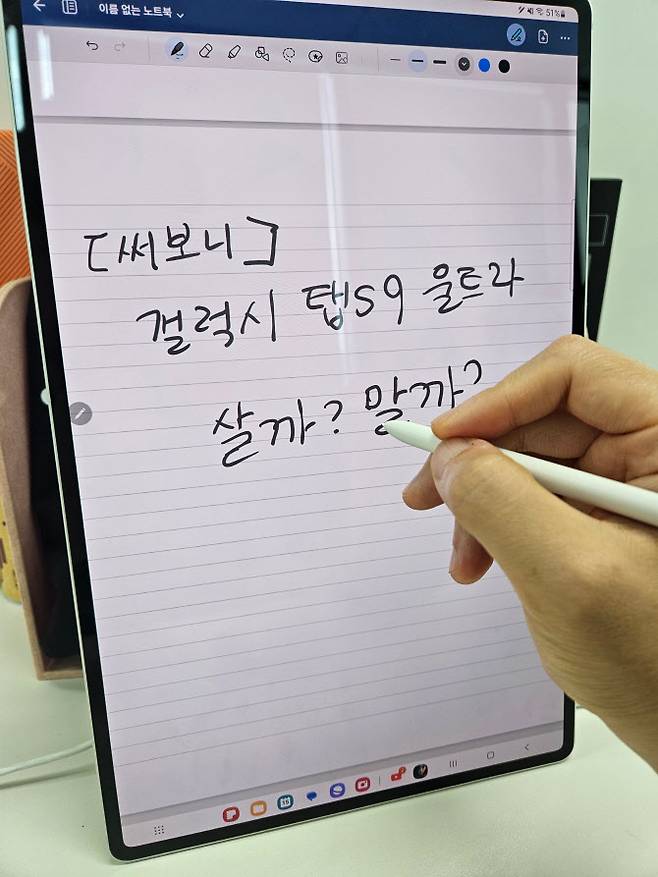 이름 없는 노트북
51%
[써보니]
갤럭시 탭S9 울트라
살까? 말까?